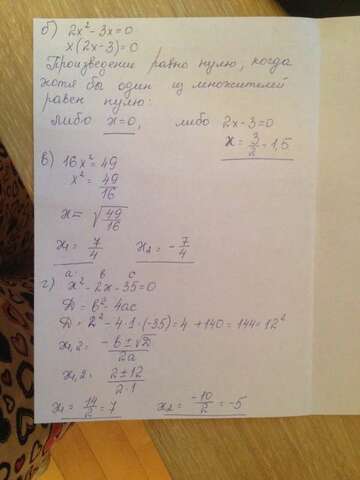 б) 2x² - 3x = 0
x(2x-3) = 0
Произведение равно нулю, когда
хотя бы один из множителей
равен нулю:
либо x=0, либо 2x-3=0
x = 3/2 = 1,5
в) 16x² = 49
x² = 49/16
x = √49/16
x₁ = 7/4 x₂ = -7/4
a в c
г) x² - 2x - 35 = 0
D = в² - 4ac
D = 2² - 4·1·(-35) = 4 + 140 = 144 = 12²
x₁,₂ = -в ± √D / 2a
x₁,₂ = 2 ± 12 / 2·1
x₁ = 14/2 = 7 x₂ = -10/2 = -5